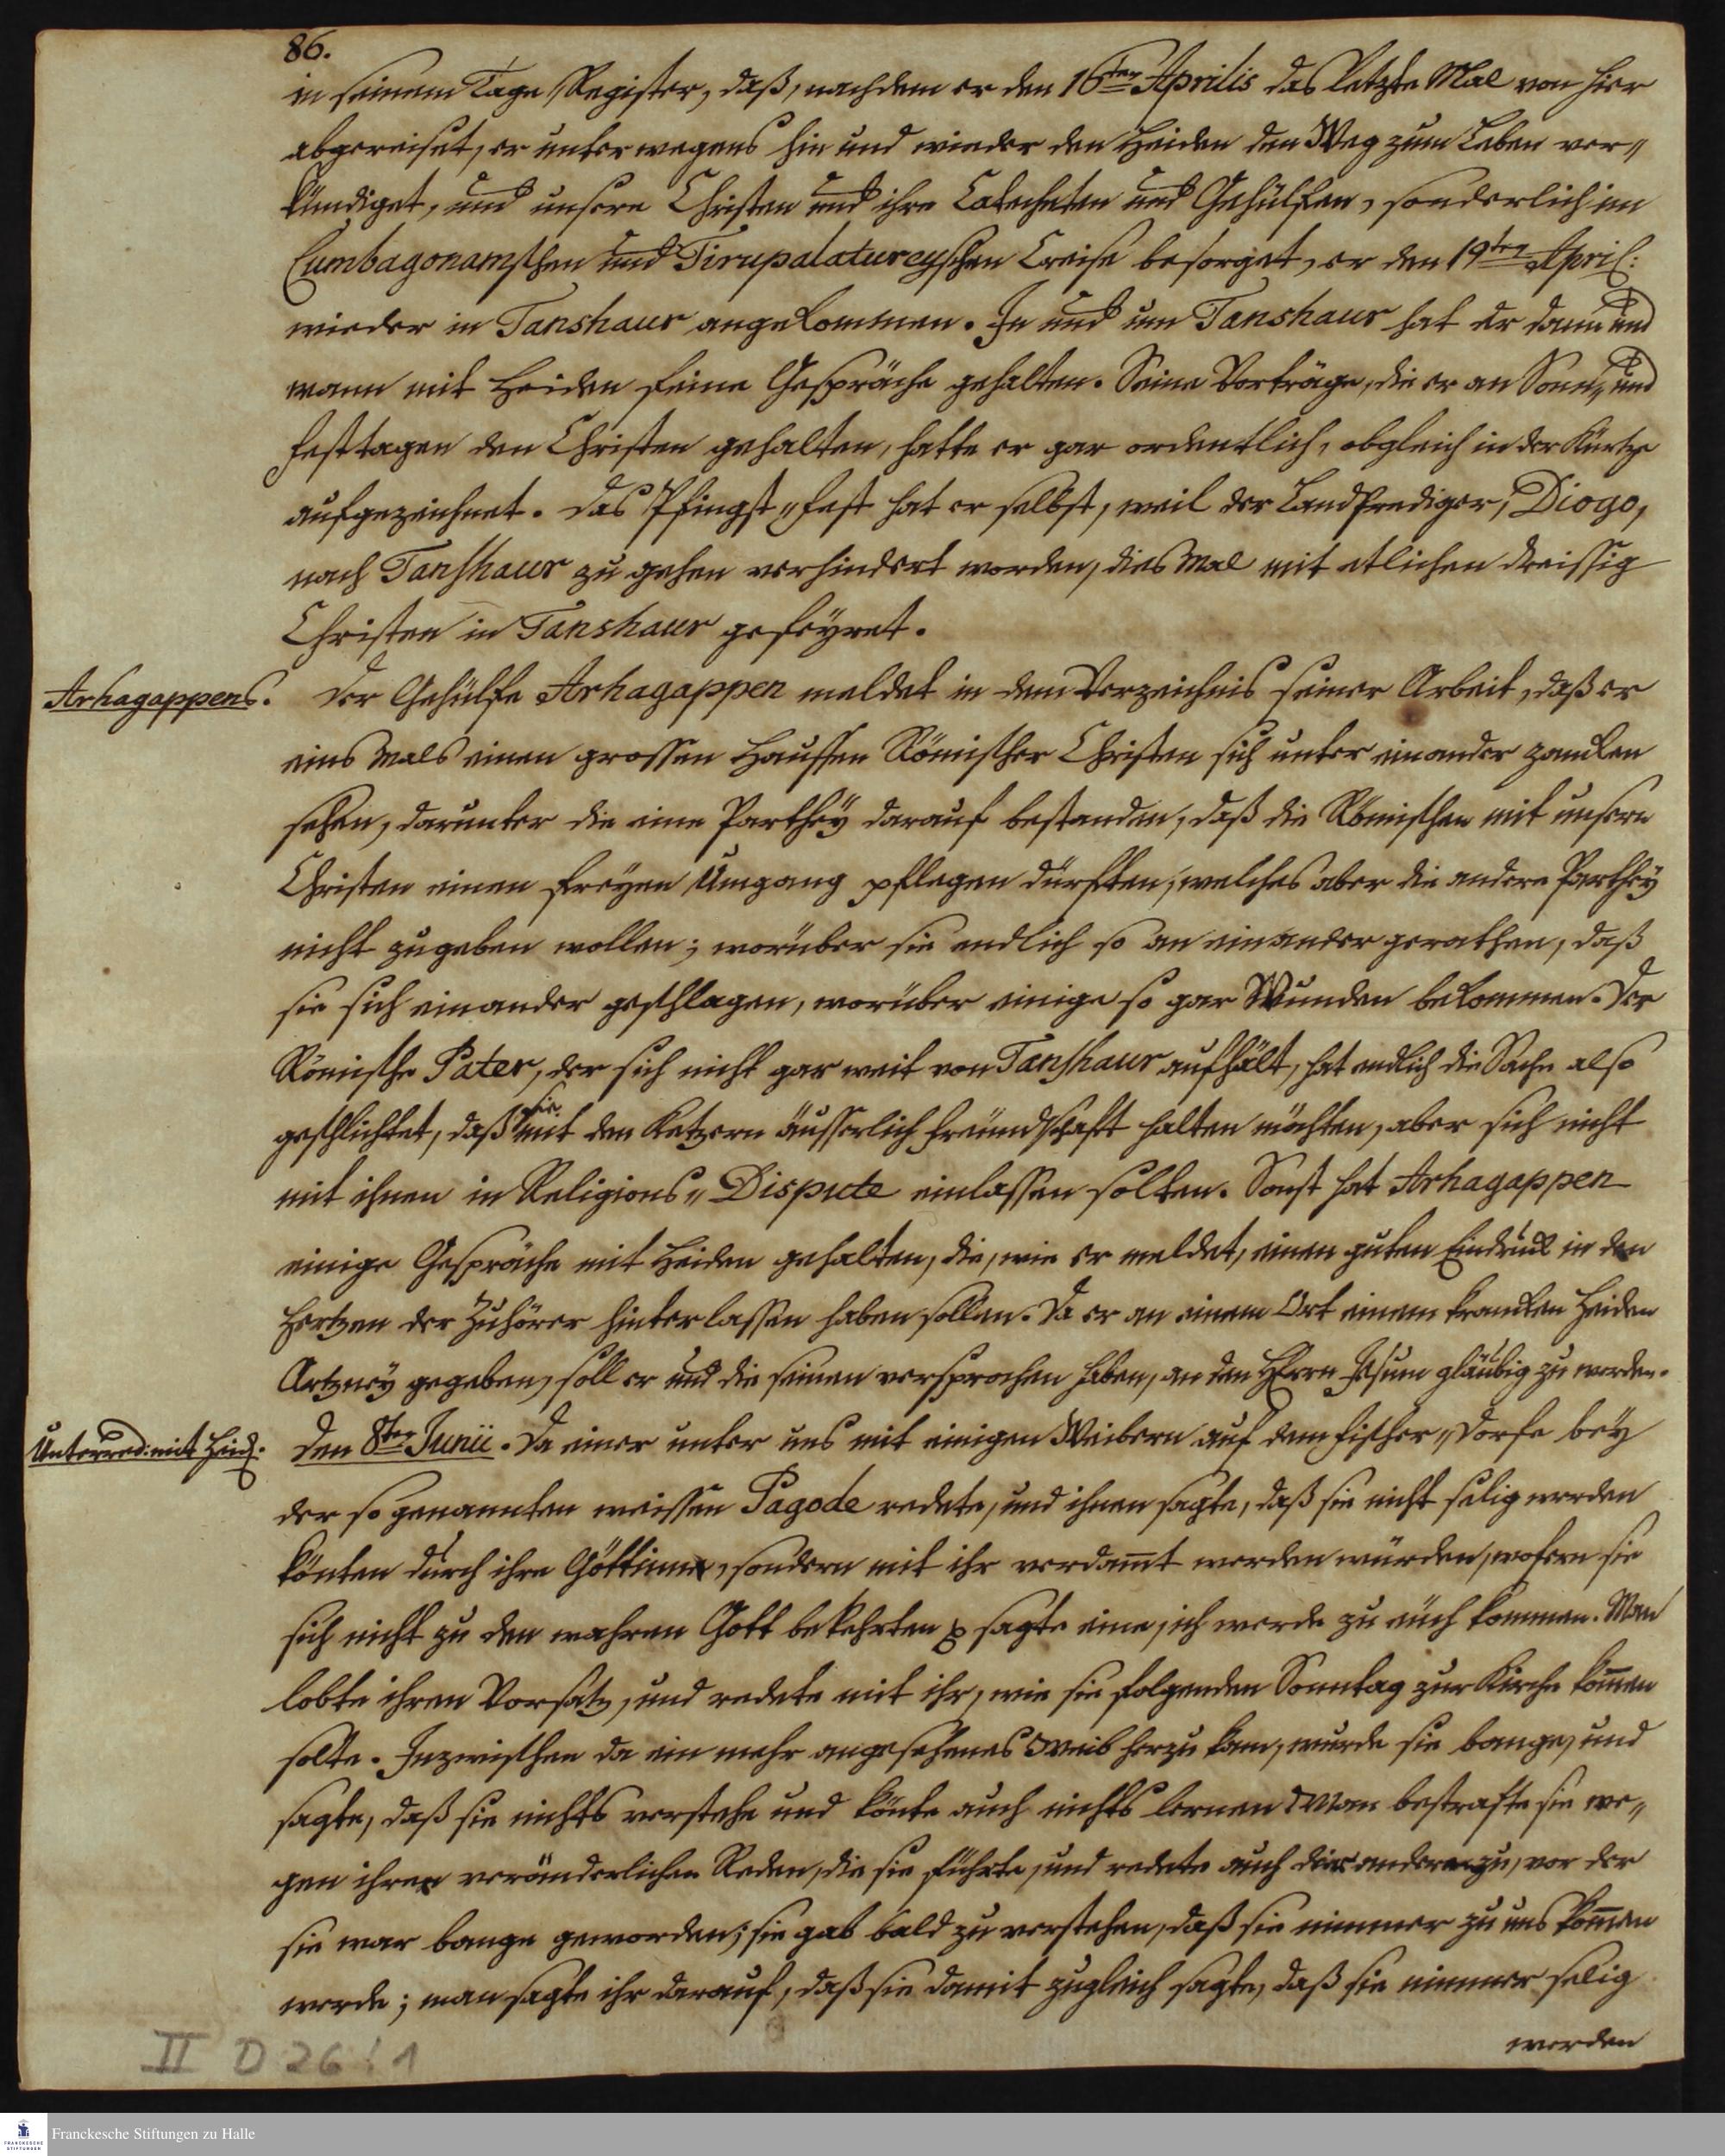 86.
in seinem Tage Register, daß, nachdem er den 16ten Aprilis das letzte Mal von hier
abgereiset, er unterwegens hin und wieder den Heiden den Weg zum Leben ver„
kündiget, und unsere Christen und ihre Catecheten und Gehülfen, sonderlich im
Cumbagonamschen und Tirupalatureyschen Creise besorget, er den 19ten April:
wieder in Tanshaur angekommen. In und um Tanshaur hat er dann und
wann mit Heiden feine Gespräche gehalten. Seine Vorträge, die er an Sonn„ und
Festtagen den Christen gehalten, hatte er gar ordentlich, obgleich in der Kürtze
aufgezeichnet. Das Pfingst„Fest hat er selbst, weil der Landprediger, Diogo,
nach Tanshaur zu gehen verhindert worden, dies Mal mit etlichen dreissig
Christen in Tanshaur gefeyret.
Arhagappens. Der Gehülfe Arhagappen meldet in dem Verzeichnis seiner Arbeit, daß er
eins Mals einen grossen Hauffen Römischer Christen sich unter einander zancken
sehen, darunter die eine Parthey darauf bestanden, daß die Römischen mit unsern
Christen einen freyen Umgang pflegen dürften, welches aber die andere Parthey
nicht zugeben wollen; worüber sie endlich so an einander gerathen, daß
sie sich einander geschlagen, worüber einige so gar Wunden bekommen. Der
Römische Pater, der sich nicht gar weit von Tanshaur aufhält, hat endlich die Sache also
geschlichtet, daß sie mit den Ketzern äusserlich Freundschaft halten möchten, aber sich nicht
mit ihnen in Religions„Dispute einlassen solten. Sonst hat Arhagappen
einige Gespräche mit Heiden gehalten, die, wie er meldet, einen guten Eindruck in den
Hertzen der Zuhörer hinterlassen haben sollen. Da er an einem Ort einem krancken Heiden
Artzney gegeben, soll er und die seinen versprochen haben, an den HErrn Jesum gläubig zu werden.
Unterred: mit Heid. Den 8ten Junii. Da einer unter uns mit einigen Weibern auf dem Fischer„Dorfe bey
der so genannten weissen Pagode redete, und ihnen sagte, daß sie nicht selig werden
könten durch ihre Göttinn, sondern mit ihr verdamt werden würden, wofern sie
sich nicht zu den wahren Gott bekehrten sagte eine, ich werde zu euch kommen. Man
lobte ihren Vorsatz, und redete mit ihr, wie sie folgenden Sonntag zur Kirche komen
solte. Inzwischen da ein mehr angesehenes Weib herzu kam, wurde sie bange, und
sagte, daß sie nichts verstehe und könte auch nichts lernen Man bestrafte sie we„
gen ihrer veränderlichen Reden, die sie führte, und redete auch der andern zu, vor der
sie war bange geworden; sie gab bald zu verstehen, daß sie nimmer zu uns komen
werde; man sagte ihr darauf, daß sie damit zugleich sagte, daß sie nimmer selig
werden
II D 26:1
Franckesche Stiftungen zu Halle